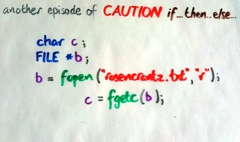 another episode of CAUTION if...then..else...
char c;
FILE *b;
b = fopen ("rosencrantz.txt","r");
c = fgetc(b);